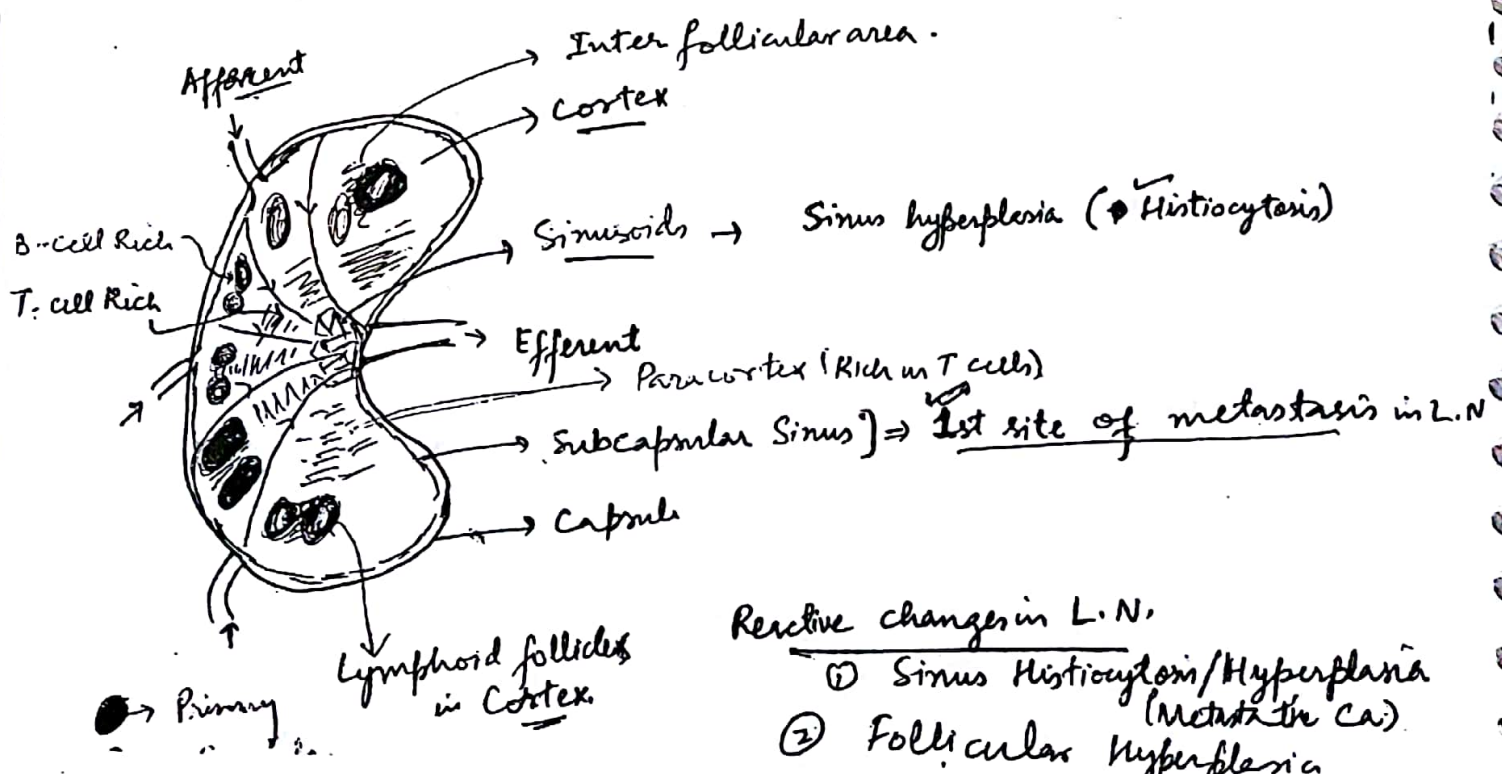 Inter follicular area.
Afferent
Cortex
B-cell Rich
T-cell Rich
Sinusoids → Sinus hyperplasia (Histiocytosis)
Efferent
Paracortex (Rich in T cells)
Subcapsular Sinus] ⇒ 1st site of metastasis in L.N
Capsule
Lymphoid follicles
in Cortex.
→ Primary
Reactive changes in L.N.
① Sinus Histiocytosis/Hyperplasia
(Metastatic Ca.)
② Follicular Hyperplasia